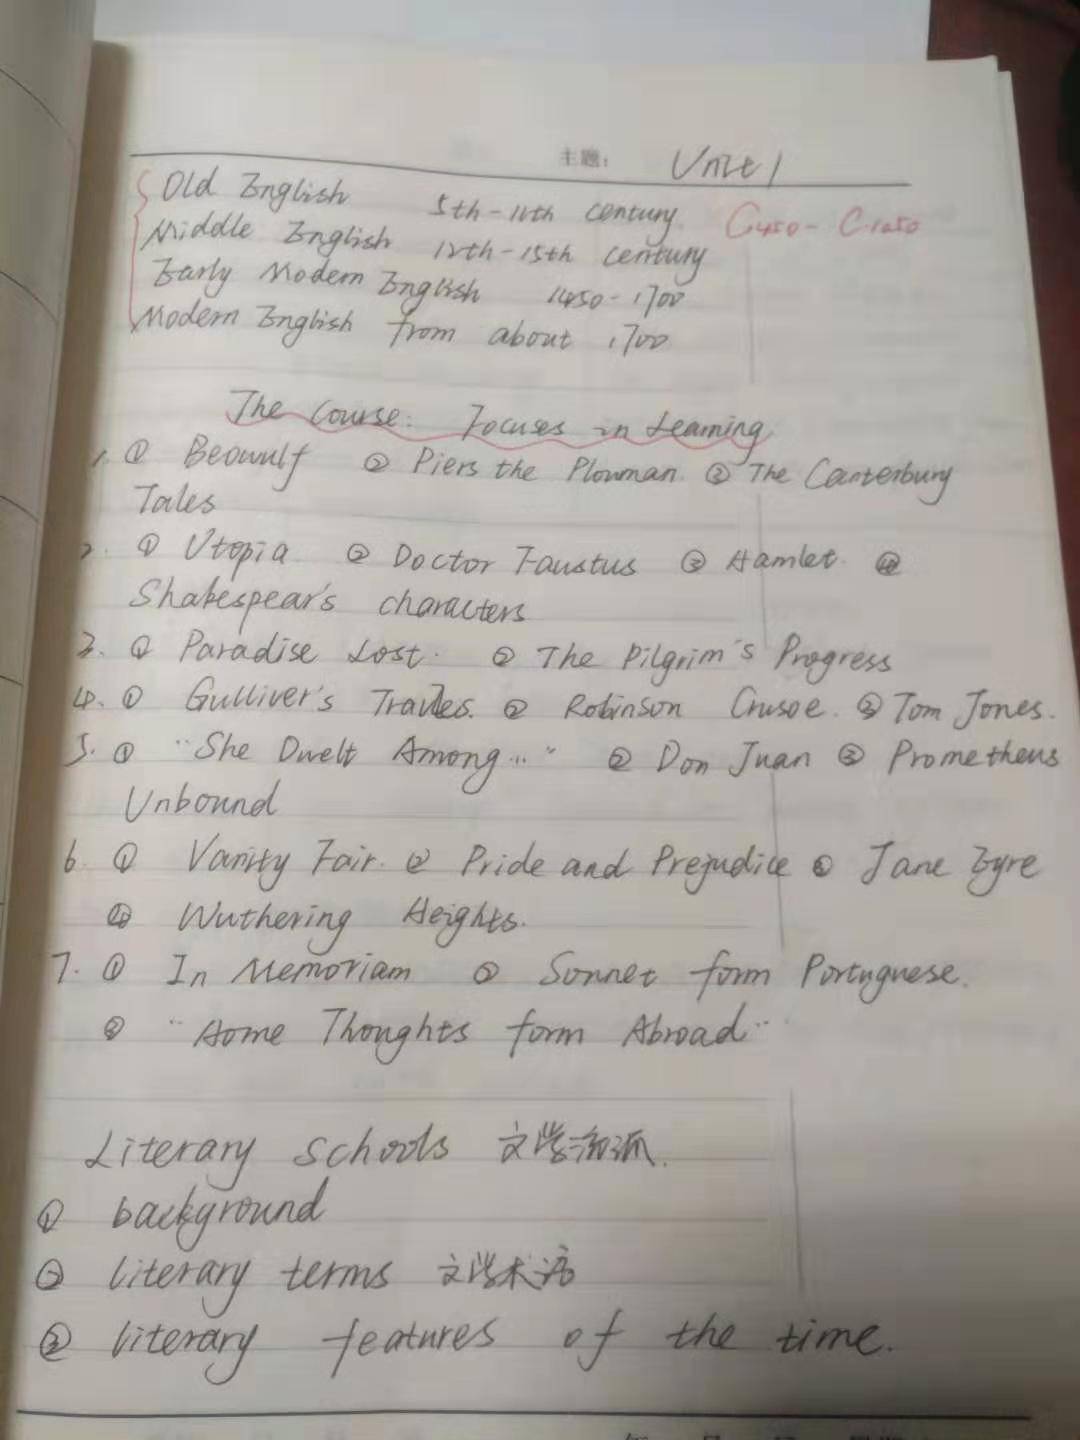 主题: Unit 1
Old English 5th-11th century C450- C.1050
Middle English 12th-15th century
Early Modern English 1450-1700
Modern English from about 1700
The Course: Focuses in Learning
1. ① Beowulf ② Piers the Plowman. ③ The Canterbury
Tales
2. ① Utopia ② Doctor Faustus ③ Hamlet. ④
Shakespear's characters
3. ① Paradise Lost. ② The Pilgrim's Progress
4. ① Gulliver's ② Robinson Crusoe. ③ Tom Jones.
5. ① "She Dwelt Among..." ② Don Juan ③ Prometheus
Unbound
6. ① Vanity Fair. ② Pride and Prejudice ③ Jane Eyre
④ Wuthering Heights.
7. ① In Memoriam ② Sonnet form Portuguese.
③ "Home Thoughts form Abroad"
Literary schools 文学流派.
① background
② literary terms 文学术语
③ literary features of the time.